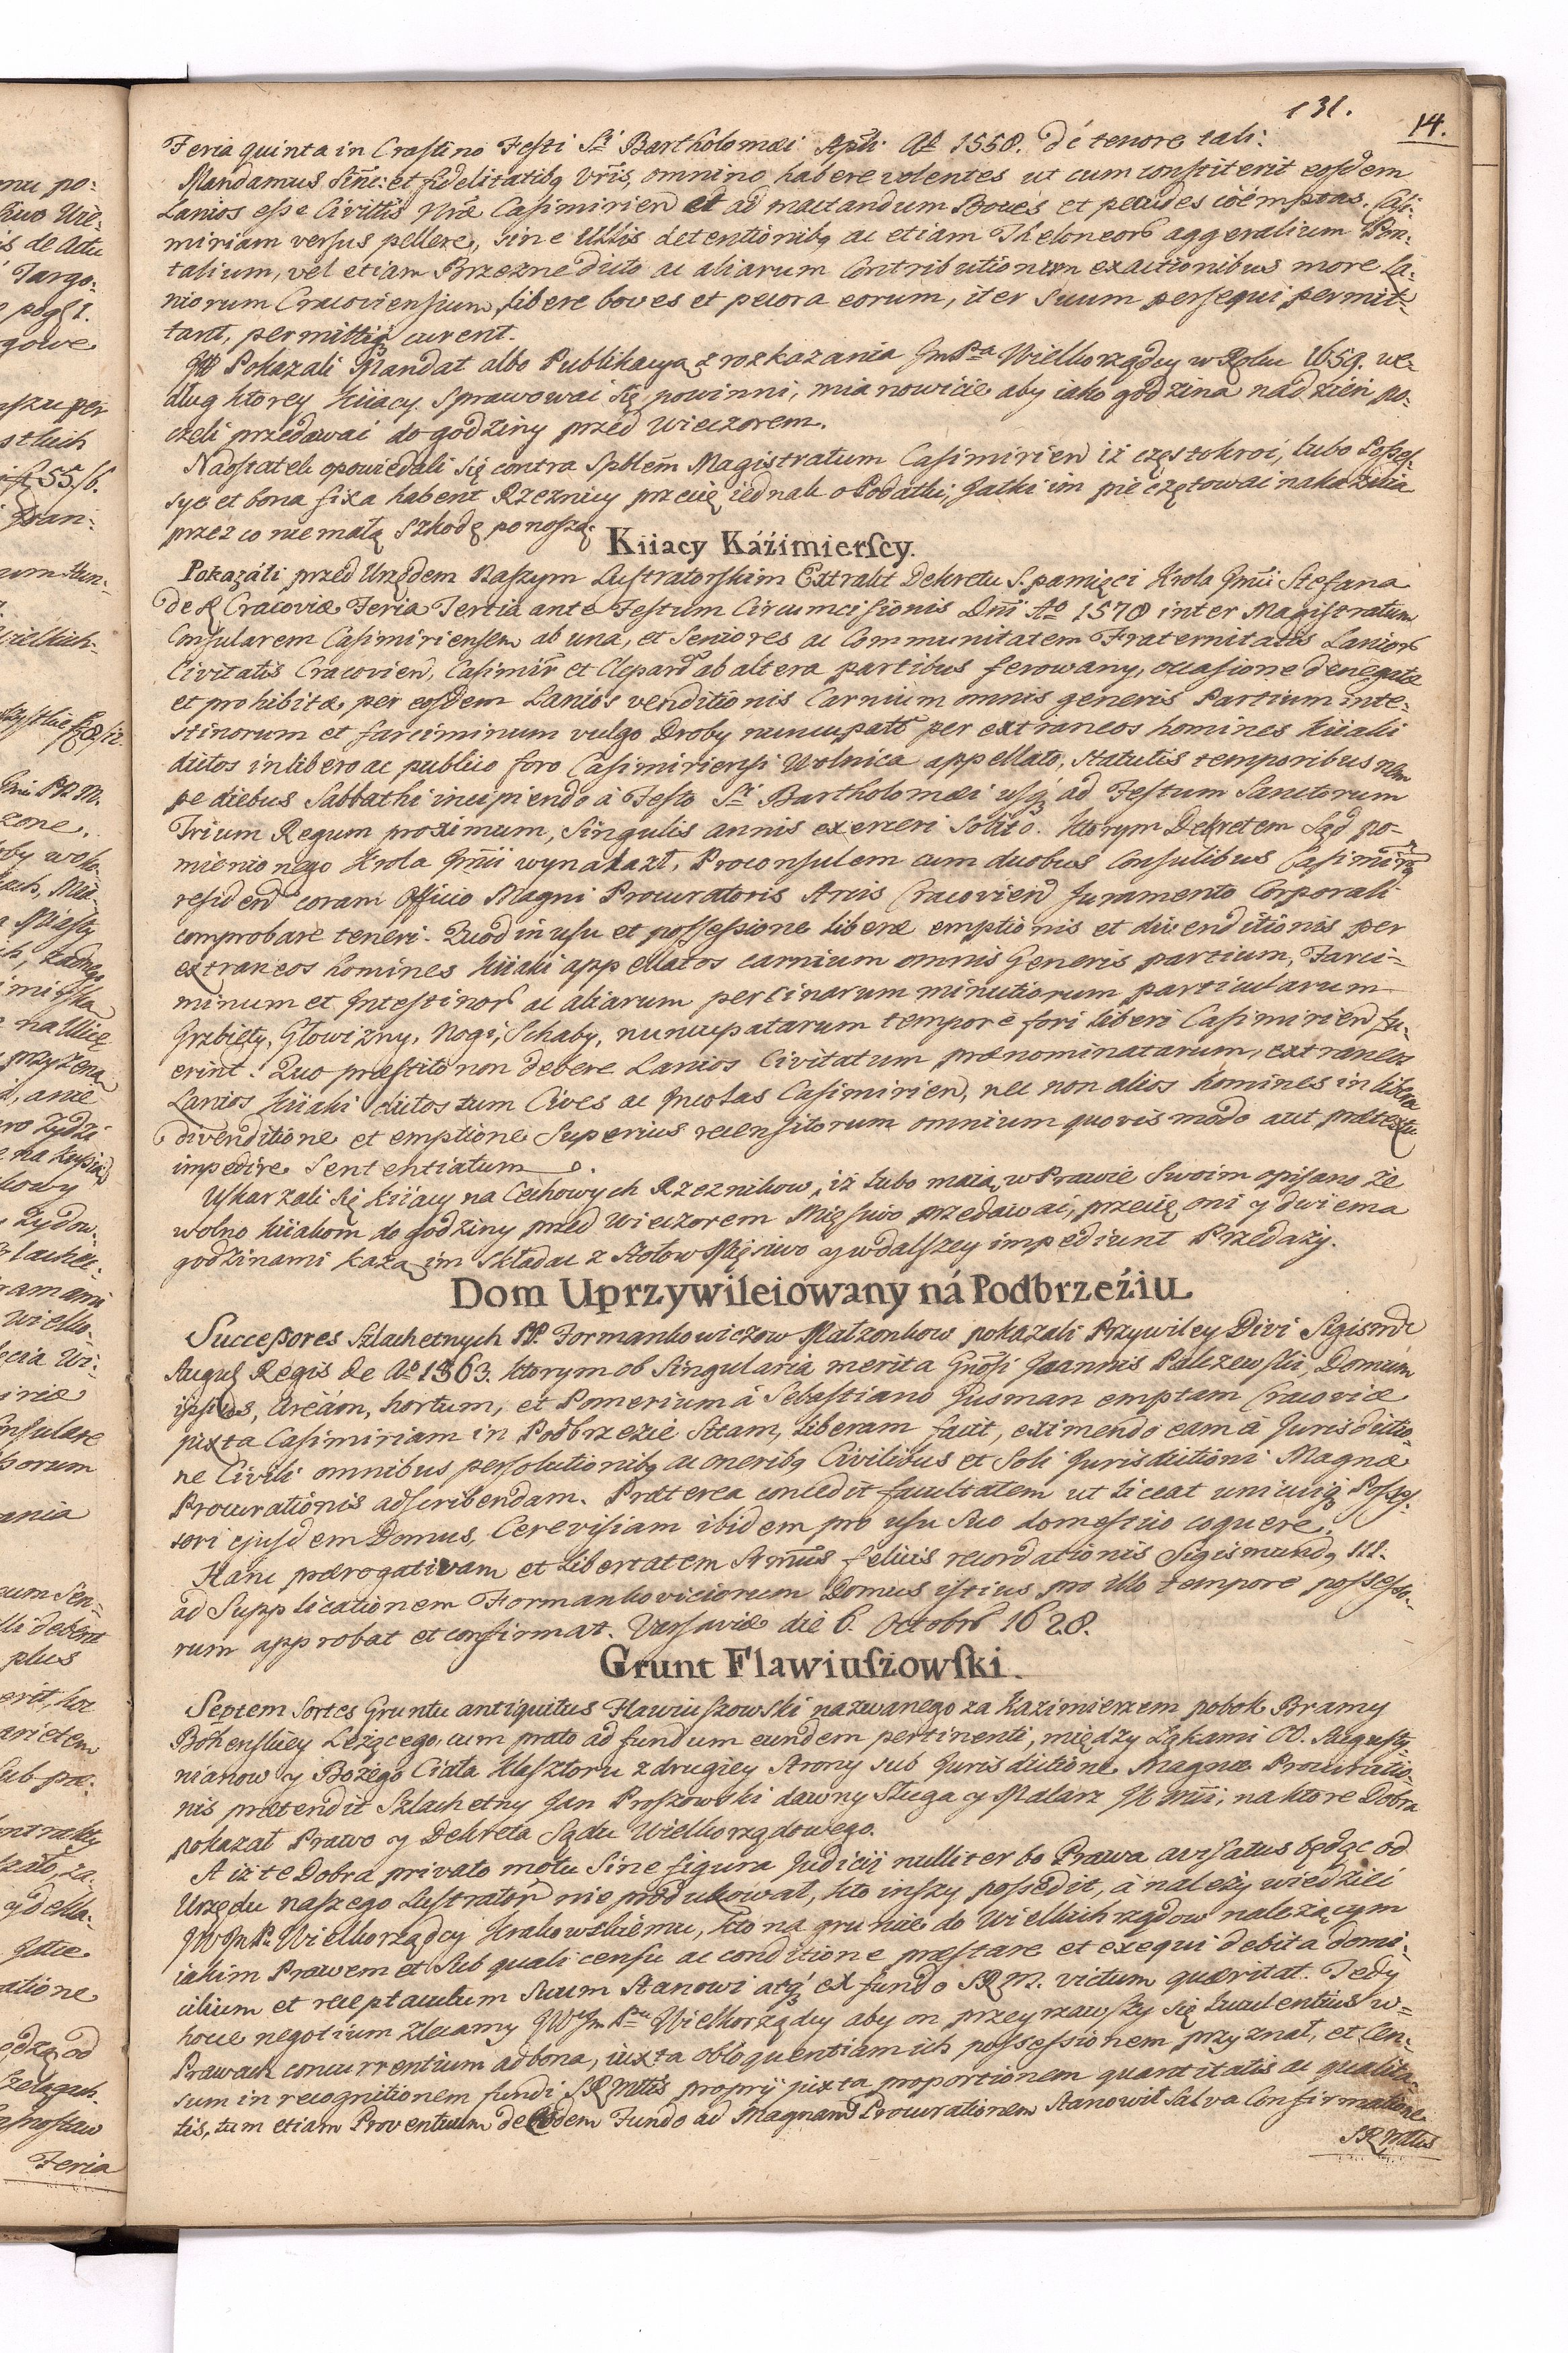 131.
14.
Feria quinta in Crastino Festi Sti Bartholomæi Apli Ao 1558. de tenore tali:
Mandamus Sinc: et fidelitatibq Vris, omnino habere volentes ut cum constiterit eosdem
Lanios esse Civittis Nræ Casimirien et ad mactandum Boves et pecudes coemptas. Casi-
miriam versus pellere, sine Ullis detentionibq ac etiam Theloneor aggeralium Pon-
talium, vel etiam Brzezne dicto ac aliarum Contributionum exactionibus more La-
niorum Cracoviensium, libere boves et pecora eorum, iter Suum persequi permit-
tant, permittiq curent.
Pokazali Mandat albo Publikacyą z rozkazania JmPa Wielkorządcy w Roku 1659. we-
dług ktorey Kiiacy Sprawowai się powinni, mianowicie aby iako godzina nadzien po-
czeli przedawai do godziny przed Wieczorem.
Nadostatek opowiedali się contra Spblem Magistratum Casimirien iż częstokroć, lubo Posses-
sye et bona fixa habent Rzeznicy przecię iednak o Podatki, Jatki im pieczętowai nakazuia
przez co niemałą Szkodę ponoszą.
Kiiacy Káźimierscy.
Pokazáli przed Urzędem Naszym Lustratorskim Extrakt Dekretu S. pamięci Krola Jmci Stefana
de Cracoviæ Feria Tertia ante Festum Circumcisionis Dni Ao 1578 inter Magistratum
Consularem Casimiriensem ab una, et Seniores ac Communitatem Fraternitatis Lanior
Civitatis Cracovien, Casimir et Clepar ab altera partibus ferowany, occasione denegatæ
et prohibitæ per eosdem Lanios venditionis Carnium omnis generis Partium inte-
stinorum et farciminum vulgo Droby nuncupat per extraneos homines Kiiaki
dictos in libero ac publico foro Casimiriensi Wolnica appellato, Statutis temporibus nem
pe diebus Sabbathi incipiendo á Festo Sti Bartholomæi usqz ad Festum Sanctorum
Trium Regum proximum, Singulis annis exerceri Solito. Ktorym Dekretem Sąd po-
mienionego Krola Jmci wynalazł, Proconsulem cum duobus Consulibus Casimir
residen coram Officio Magni Procuratoris Arcis Cracovien Juramento Corporali
comprobare teneri. Quod in usu et possessione liberæ emptionis et divenditionis per
extraneos homines Kiiaki appellatos carnium omnis Generis partium, Farci-
minum et Intestinor ac aliarum percinarum minutiorum particularum
Grzbiety, Głowizny, Nogi, Schaby, nuncupatarum tempore fori liberi Casimirien fu-
erint. Quo præstito non debere Lanios Civitatum prænominatarum, extraneos
Lanios Kiiaki dictos tum Cives ac Incolas Casimirien, nec non alios homines in libera
divenditione et emptione Superius recensitorum omnium quovis modo aut prætextu
impedire Sententiatum.
Uskarzali się Kiiacy na Cechowych Rzeznikow, iż lubo maią w Prawie Swoim opisano że
wolno Kiiakom do godziny przed Wieczorem Mięsiwo przedawai, przecię oni y dwiema
godzinami każą im Składac z Stołow Mięsiwo y wdalszey impediunt Przedaży.
Dom Uprzywileiowany ná Podbrzeźiu
Successores Szlachetnych PP. Formankowiczow Małzonkow pokazali Przywiley Divi Sigismdi
August Regis de Ao 1563. ktorym ob Singularia merita Gnosi Joannis Palczewski, Domum
ipsius, Aream, hortum, et Pomerium á Sebastiano Gusman emptam Cracoviæ
juxta Casimiriam in Podbrzezie Sitam, liberam facit, eximendo eam á Jurisdictio-
ne Civili omnibus persolutionibq ac oneribq Civilibus et Soli Jurisdictioni Magnæ
Procurationis adscribendam. Præterea concedit facultatem ut liceat unicuiqz Posses-
sori ejusdem Domus, Cerevisiam ibidem pro usu Suo domestico coquere.
Hanc prærogativam et Libertatem Srmus felicis recordationis Sigismundq III.
ad Supplicationem Formankoviciorum Domus istius pro illo tempore possesso-
rum approbat et confirmat. Varsaviæ die 6. Octobr 1628.
Grunt Flawiuszowski.
Septem Sortes Gruntu antiquitus Flawiuszowski nazwanego za Kazimierzem pobok Bramy
Bohenskiey Leżącego, cum prato ad fundum eundem pertinenti, między Łąkami OO. Augusty-
nianow y Bożego Ciała Klasztoru z drugiey Strony sub Jurisdictione Magnæ Procuratio-
nis prætendit Szlachetny Jan Proszowski dawny Sługa y Malarz JKMci, na ktore Dobra
pokazał Prawo y Dekreta Sądu Wielkorządowego.
A iż te Dobra privato motu Sine figura Judicij nulliter bo Prawa avisatus będąc od
Urzędu naszego Lustrator nie produkował, kto inszy possedit, á należy wiedzieć
JWJm Pu Wielkorządcy Krakowskiemu, kto na gruncie do Wielkichrządow należącym
iakim Prawem et Sub quali censu ac conditione præstare et exequi debita domi-
cilium et receptaculum Suum Stanowi atqz ex fundo SRM. victum quæritat. Tedy
hocce negotium zlecamy JWJm Pu Wielkorządcy aby on przeyrzawszy się luculentius w
Prawach concurrentium ad bona, iuxta obloquentiam ich possessionem przyznał, et Cen-
sum in recognitionem fundi SRMttis proprij juxta proportionem quantitatis ac qualita-
tis, tum etiam Proventuum de eodem Fundo ad Magnam Procurationem Stanowił Salva Confirmatione
SRMttis